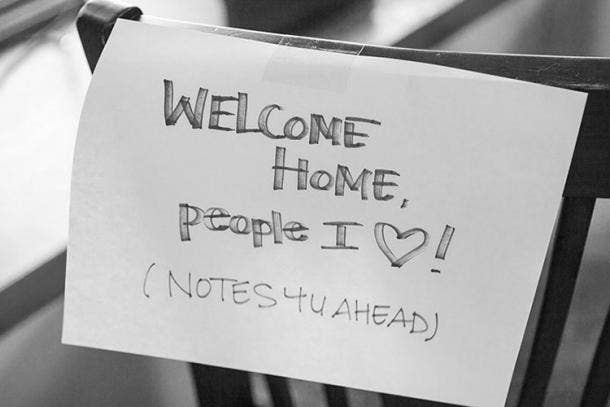 WELCOME
HOME,
people I ♡!
(NOTES 4U AHEAD)